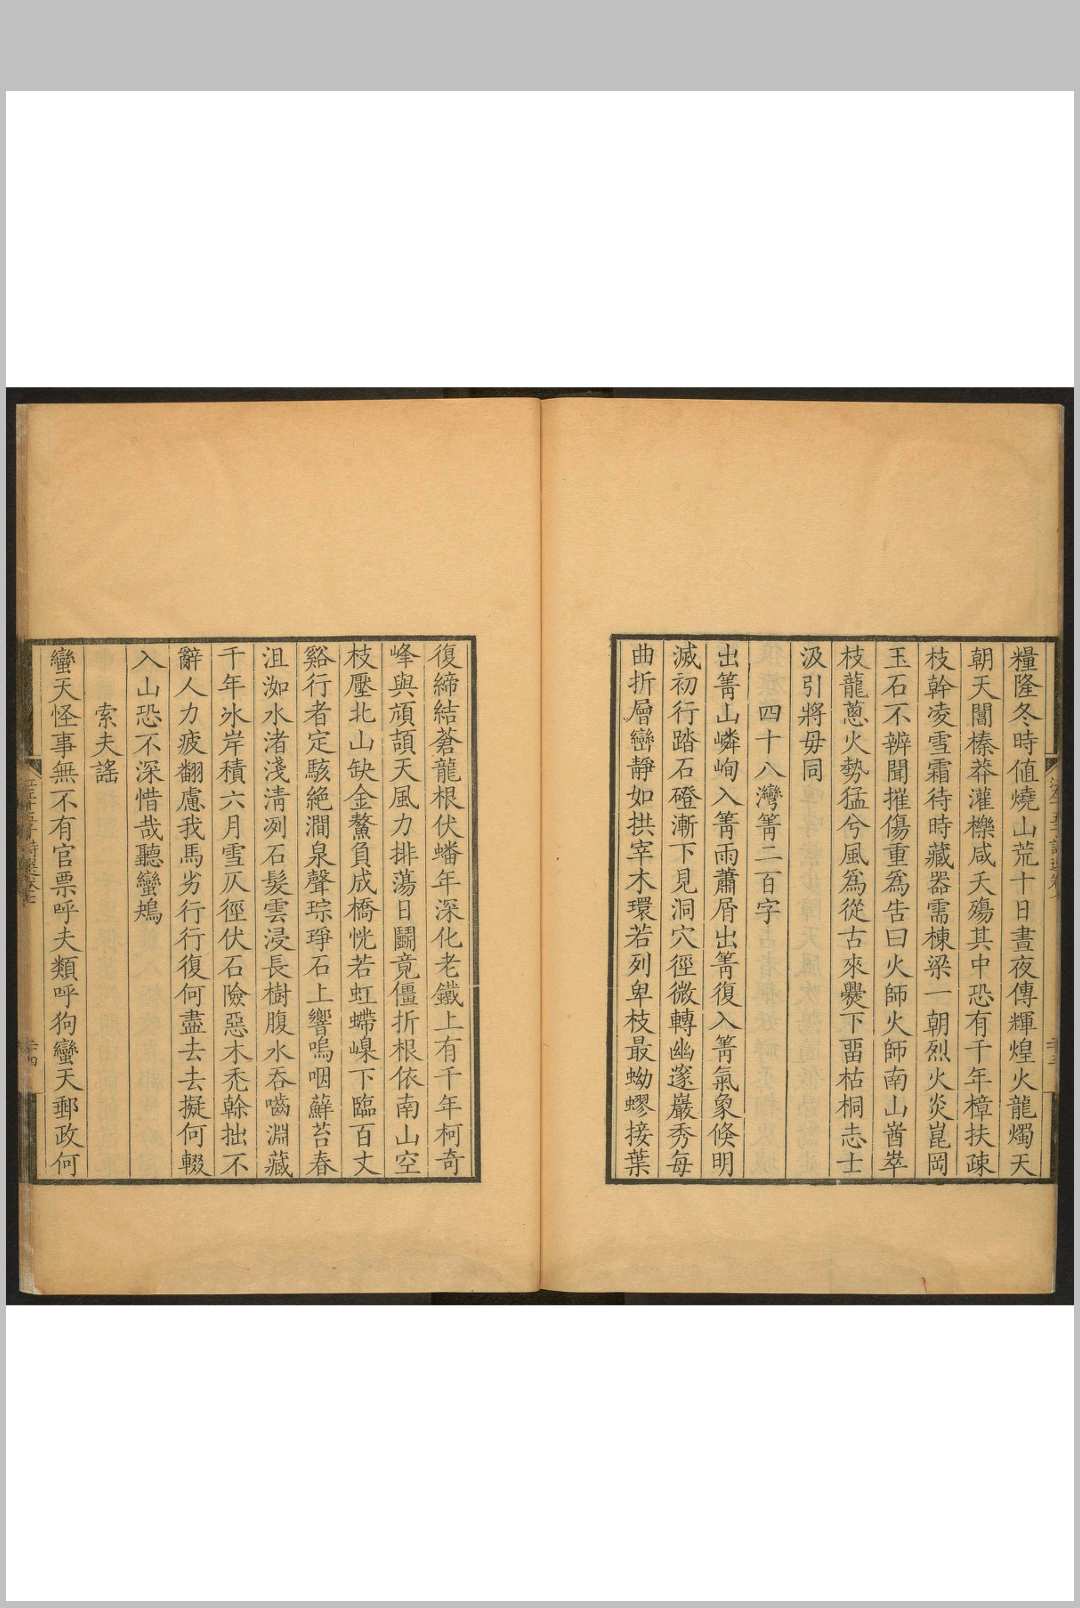 糧隆冬時值燒山荒十日晝夜傳輝煌火龍燭天
朝天闇榛莽灌櫟咸夭殤其中恐有千年樟扶疎
枝幹凌雪霜待時藏器需棟梁一朝烈火炎崑岡
玉石不辨聞摧傷重爲告曰火師火師南山崷崒
枝龍蔥火勢猛兮風爲從古來爨下畱枯桐志士
汲引將毋同
四十八灣箐二百字
出箐山嶙峋入箐雨蕭屑出箐復入箐氣象倏明
滅初行踏石磴漸下見洞穴徑微轉幽邃巖秀每
曲折層巒靜如拱宰木環若列卑枝最蚴蟉接葉
復締結蒼龍根伏蟠年深化老鐵上有千年柯奇
峰與頏頡天風力排蕩日鬬竟僵折根依南山空
枝壓北山缺金鰲負成橋恍若虹螮嵲下臨百丈
谿行者定駭絕澗泉聲琮琤石上響嗚咽蘚苔春
沮洳水渚淺淸冽石髮雲浸長樹腹水吞嚙淵藏
千年冰岸積六月雪仄徑伏石險惡木禿榦拙不
辭人力疲翻慮我馬劣行行復何盡去去擬何輟
入山恐不深惜哉聽蠻鴂
索夫謠
蠻天怪事無不有官票呼夫類呼狗蠻天郵政何